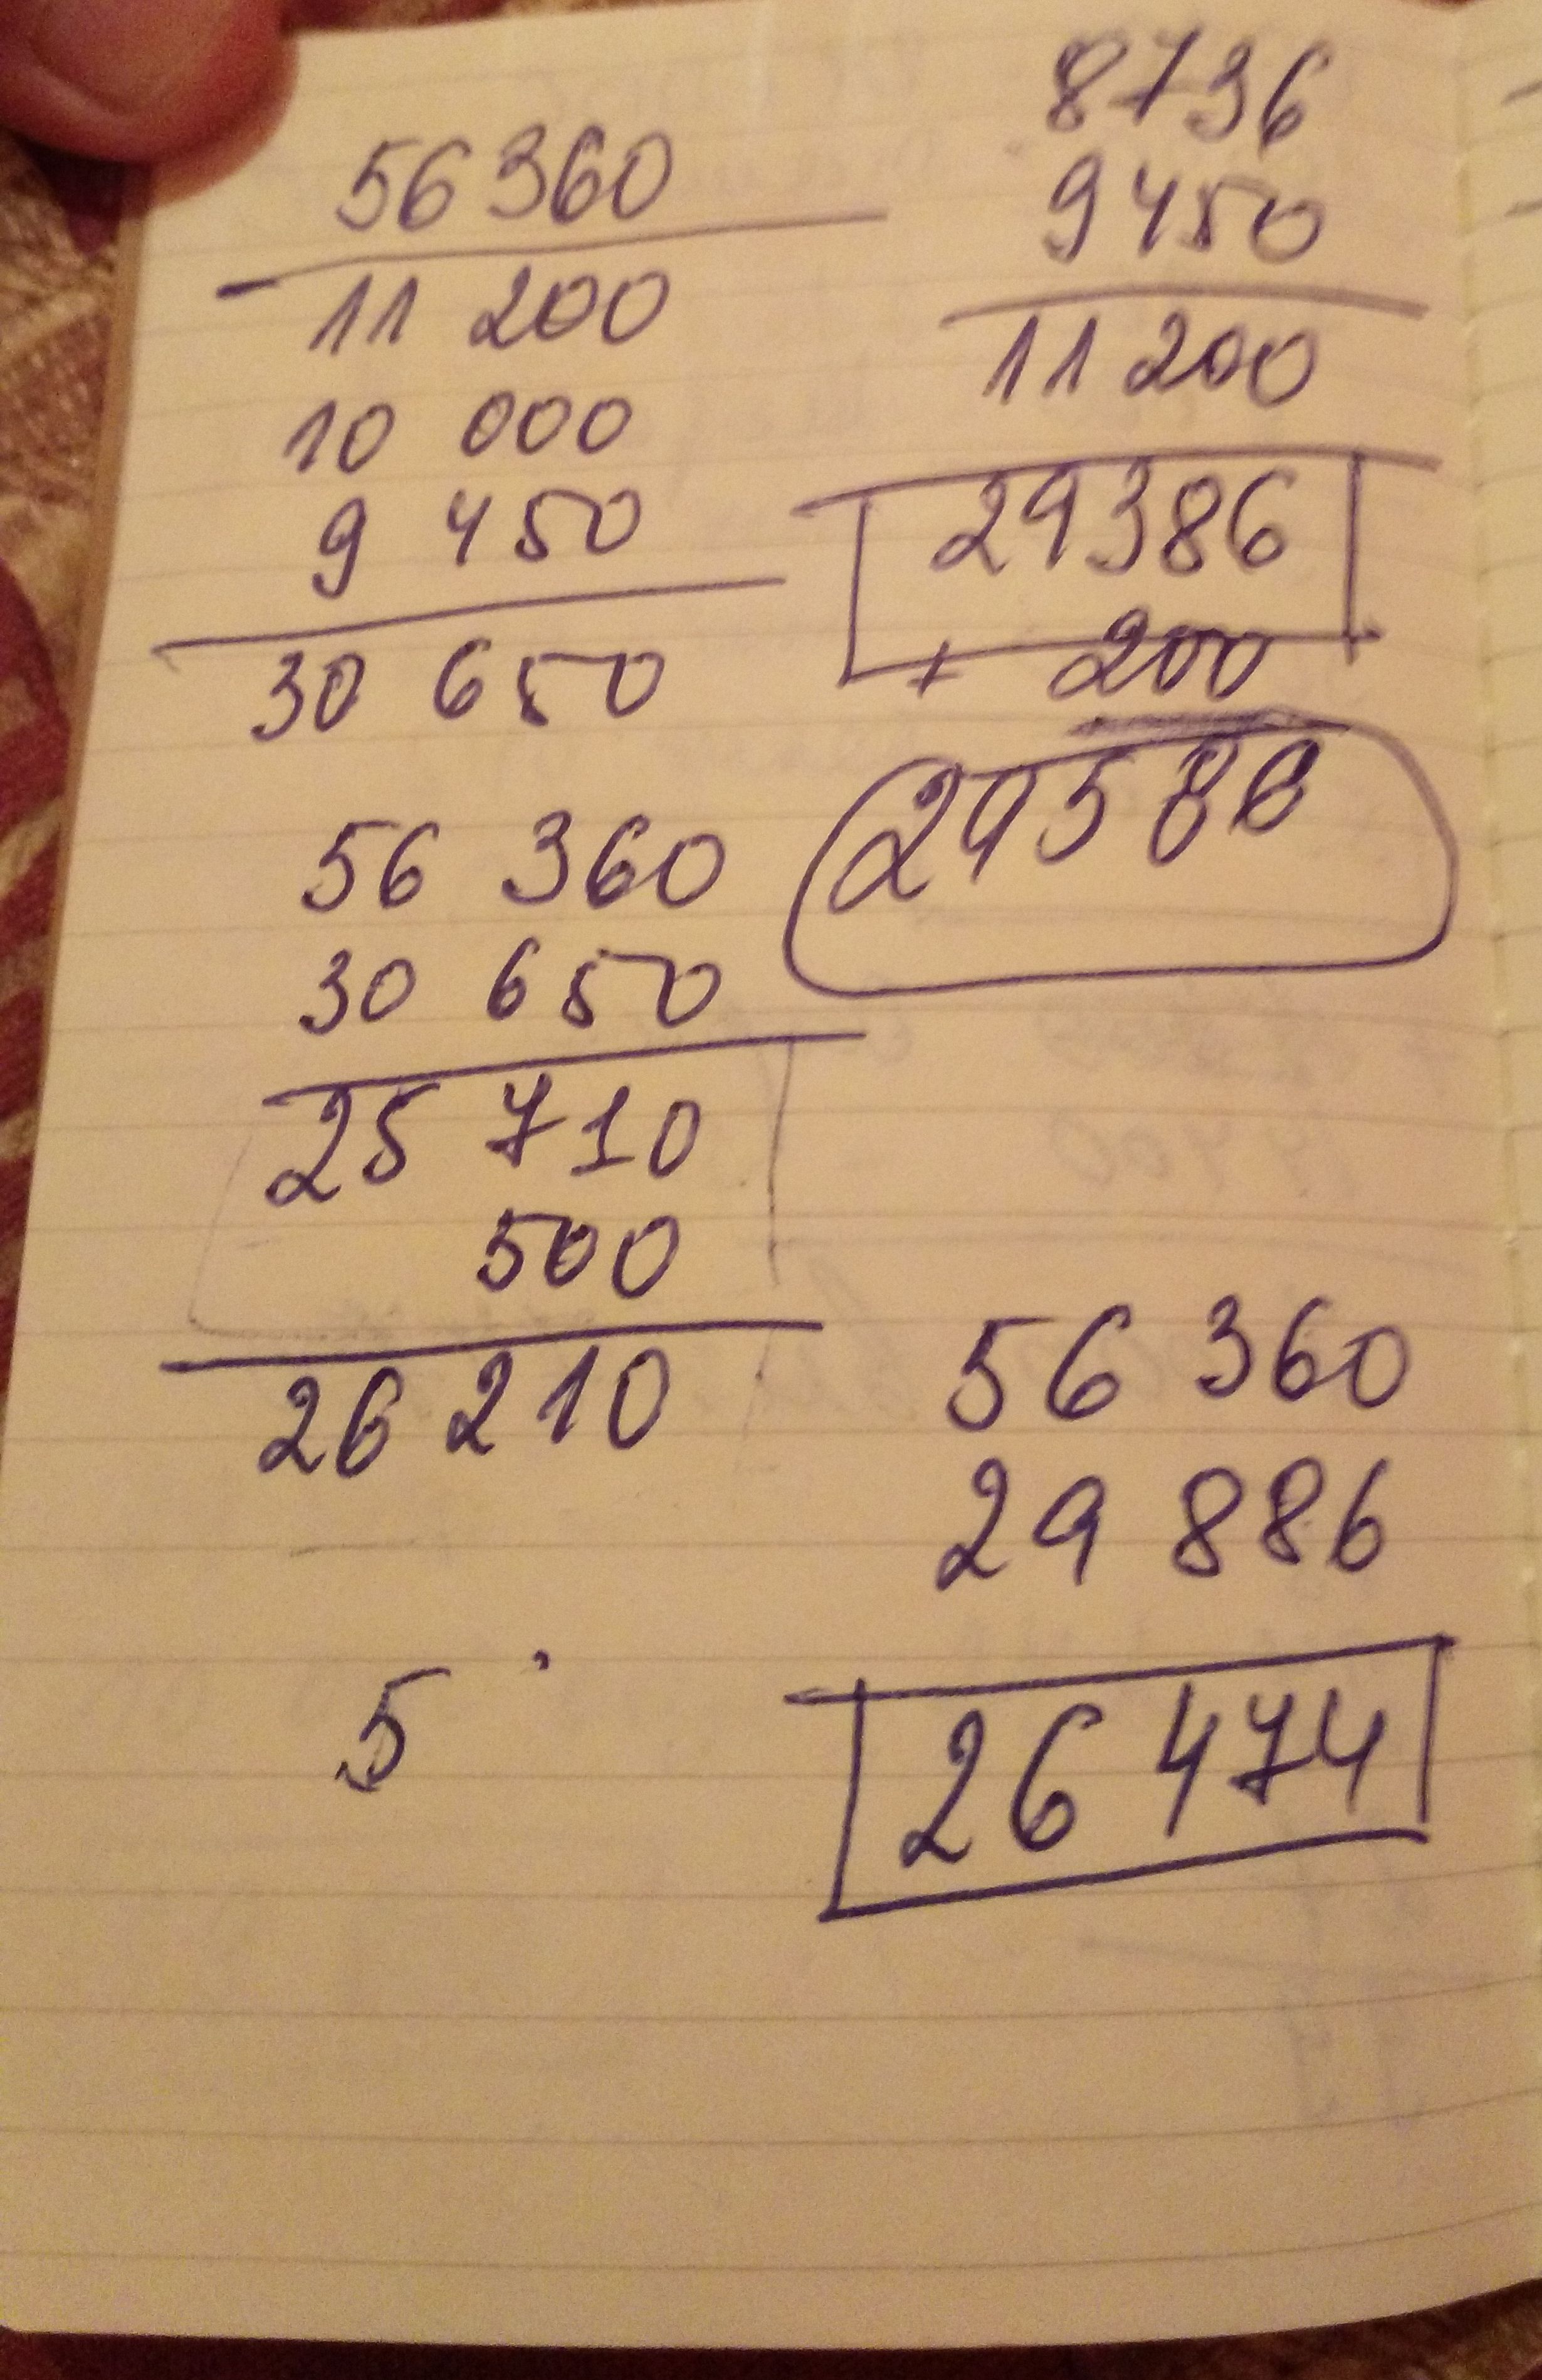 56 360
- 11 200
10 000
9 450
30 650
56 360
30 650
25 710
500
26 210
5
8736
9450
11 200
29386
+ 200
29586
56 360
29 886
26 474